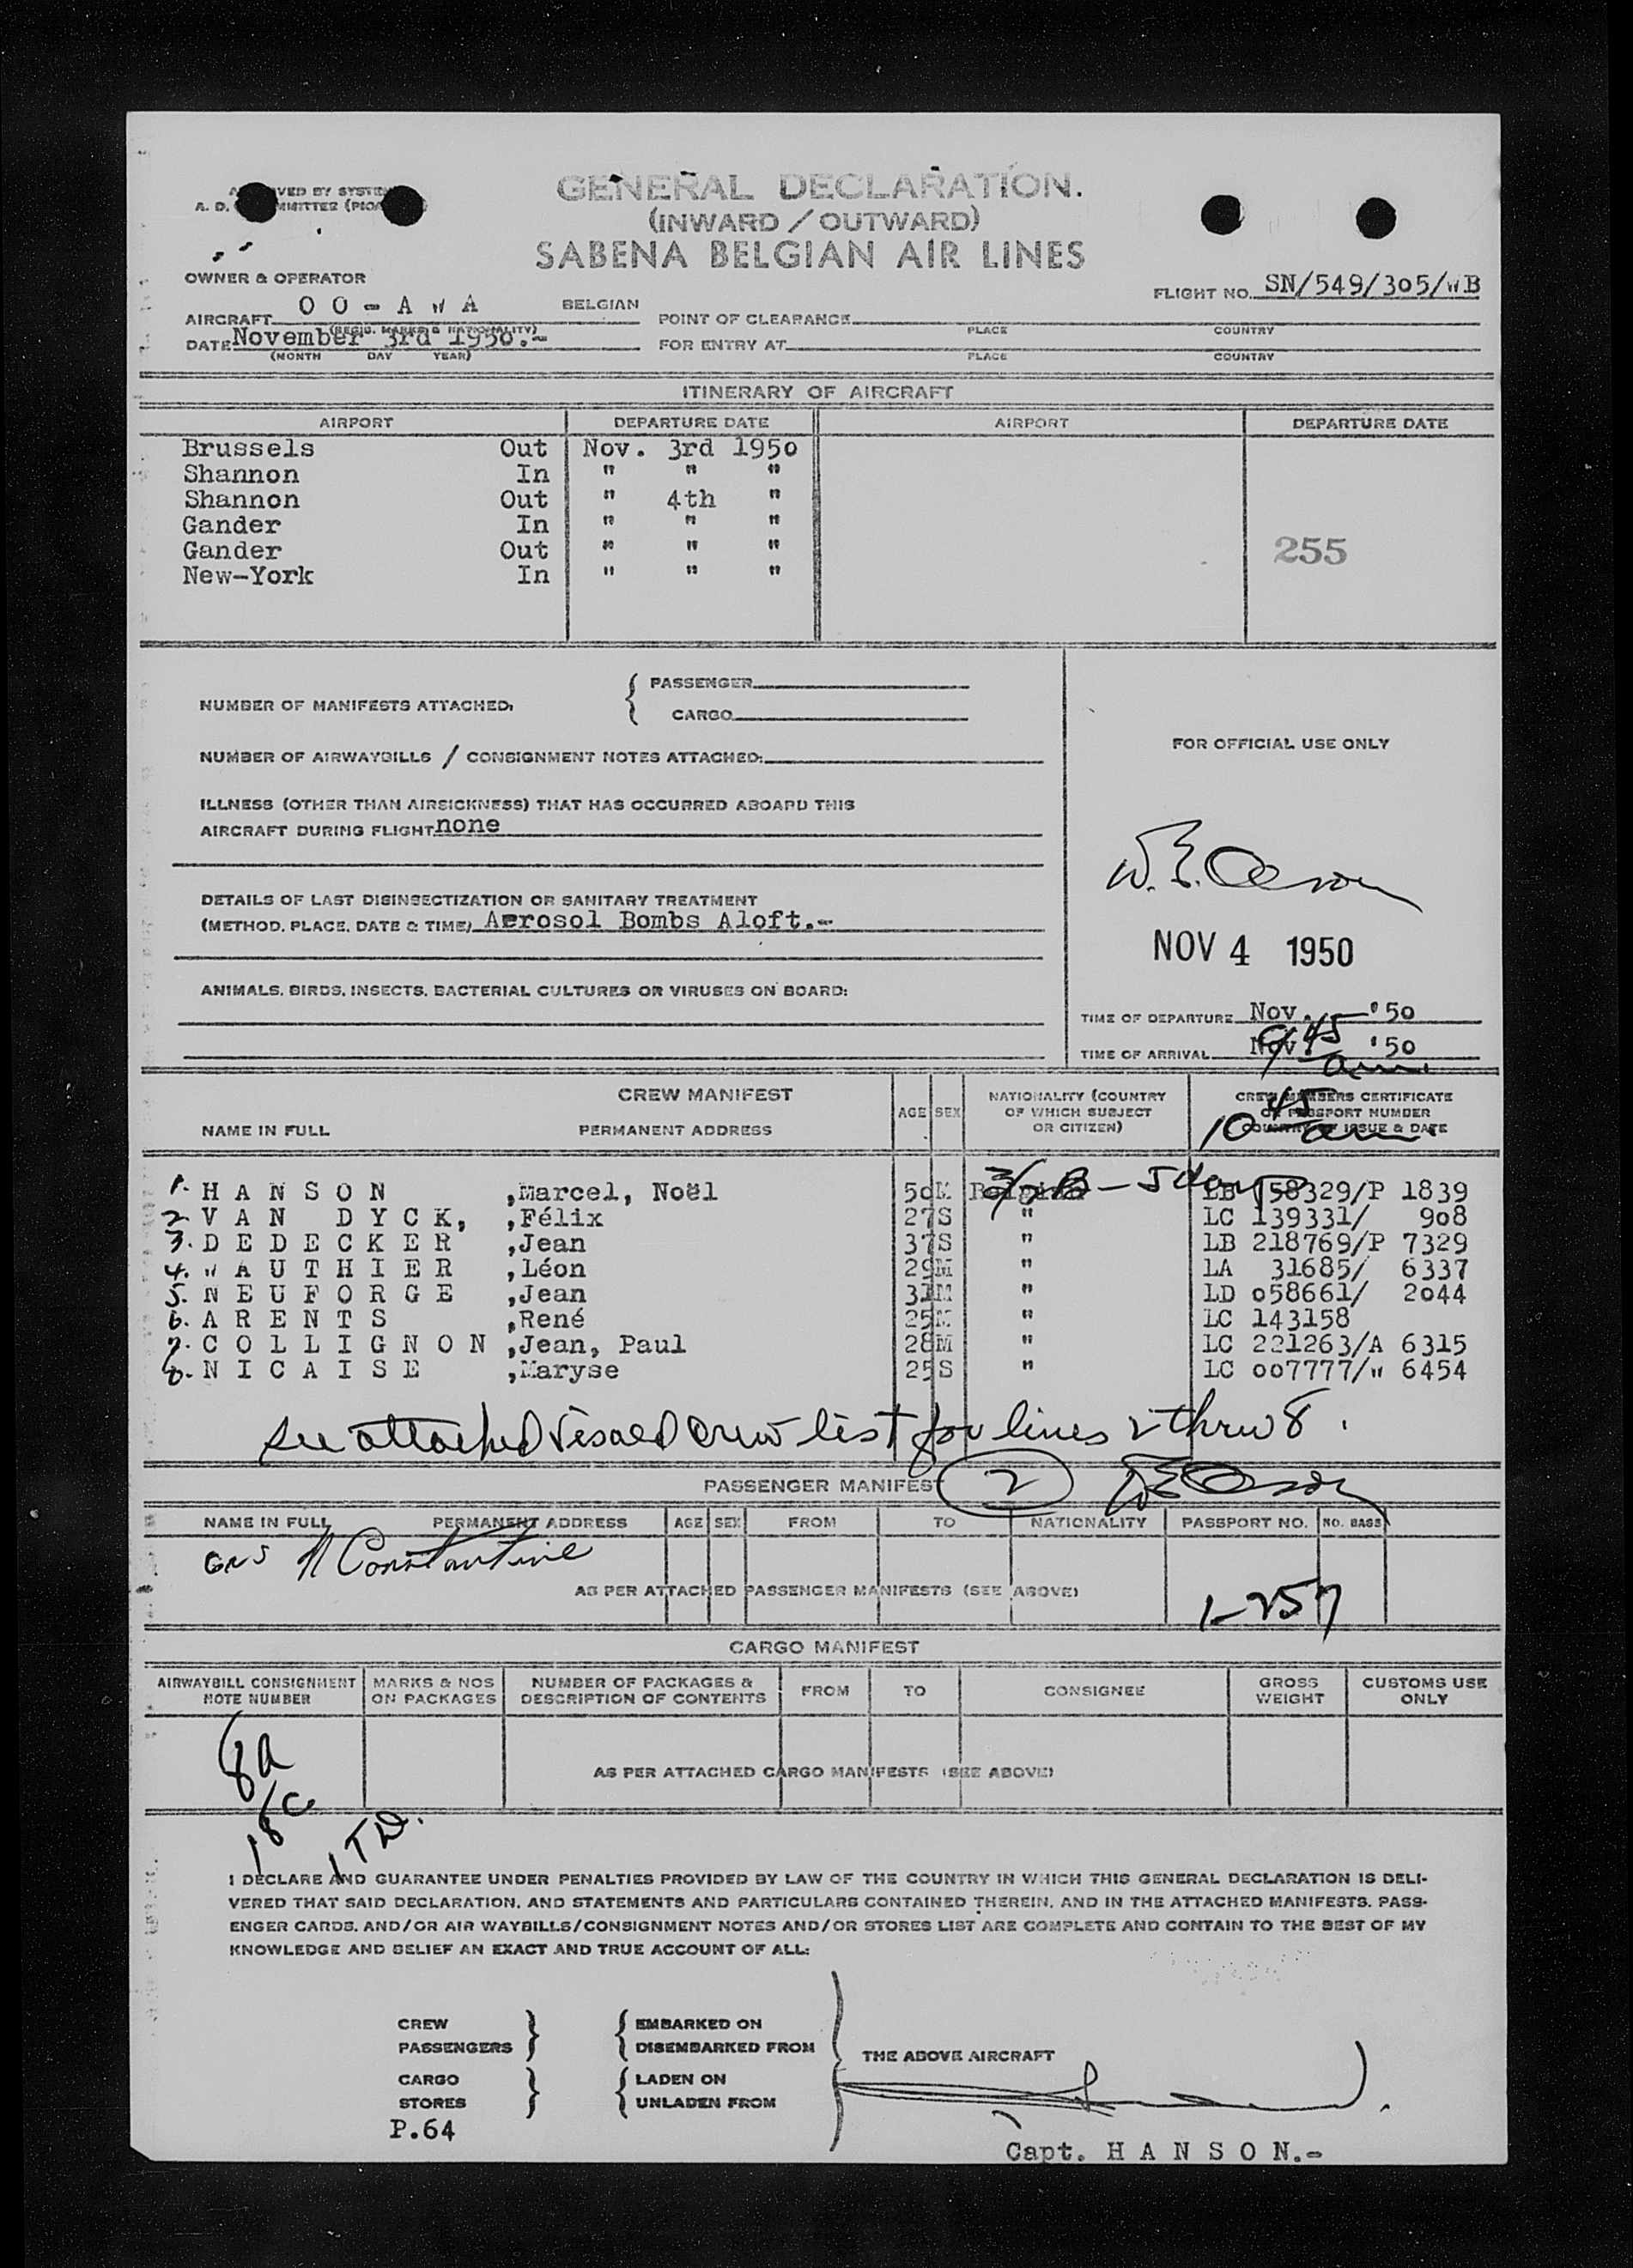 GENERAL DECLARATION.
(INWARD / OUTWARD)
SABENA BELGIAN AIR LINES
VED BY SYSTE
A. D. MMITTEE (PICA
OWNER & OPERATOR
FLIGHT NO. SN/549/305/WB
AIRCRAFT OO-AWA BELGIAN
(REGIS. MARKS & NATIONALITY)
POINT OF CLEARANCE
PLACE COUNTRY
DATE November 3rd 1950.-
(MONTH DAY YEAR)
FOR ENTRY AT
PLACE COUNTRY
ITINERARY OF AIRCRAFT
AIRPORT DEPARTURE DATE AIRPORT DEPARTURE DATE
Brussels Out Nov. 3rd 1950
Shannon In " " "
Shannon Out " 4th "
Gander In " " "
Gander Out " " "
255
New-York In " " "
NUMBER OF MANIFESTS ATTACHED:
PASSENGER
CARGO
NUMBER OF AIRWAYBILLS / CONSIGNMENT NOTES ATTACHED:
ILLNESS (OTHER THAN AIRSICKNESS) THAT HAS OCCURRED ABOARD THIS
AIRCRAFT DURING FLIGHT none
DETAILS OF LAST DISINSECTIZATION OR SANITARY TREATMENT
(METHOD, PLACE, DATE & TIME) Aerosol Bombs Aloft.-
ANIMALS, BIRDS, INSECTS, BACTERIAL CULTURES OR VIRUSES ON BOARD:
FOR OFFICIAL USE ONLY
NOV 4 1950
TIME OF DEPARTURE Nov. '50
9 45 am
TIME OF ARRIVAL Nov. '50
10 45 am
CREW MANIFEST
NAME IN FULL PERMANENT ADDRESS AGE SEX NATIONALITY (COUNTRY OF WHICH SUBJECT OR CITIZEN) CREW MEMBERS CERTIFICATE OR PASSPORT NUMBER COUNTRY OF ISSUE & DATE
1. HANSON ,Marcel, Noël 50 M Belgian LB 158329/P 1839
2 VAN DYCK, ,Félix 27 S " LC 139331/ 908
3. DEDECKER ,Jean 37 S " LB 218769/P 7329
4. WAUTHIER ,Léon 29 M " LA 31685/ 6337
5. NEUFORGE ,Jean 31 M " LD 058661/ 2044
6. ARENTS ,René 25 M " LC 143158
7. COLLIGNON ,Jean, Paul 28 M " LC 221263/A 6315
8. NICAISE ,Maryse 25 S " LC 007777/W 6454
see attached visaed crew list for lines 2 thru 8.
PASSENGER MANIFEST 2
NAME IN FULL PERMANENT ADDRESS AGE SEX FROM TO NATIONALITY PASSPORT NO. NO. BAGS
N Constantine
AS PER ATTACHED PASSENGER MANIFESTS (SEE ABOVE)
1-257
CARGO MANIFEST
AIRWAYBILL CONSIGNMENT NOTE NUMBER MARKS & NOS ON PACKAGES NUMBER OF PACKAGES & DESCRIPTION OF CONTENTS FROM TO CONSIGNEE GROSS WEIGHT CUSTOMS USE ONLY
8a
18C
1 TD.
AS PER ATTACHED CARGO MANIFESTS (SEE ABOVE)
I DECLARE AND GUARANTEE UNDER PENALTIES PROVIDED BY LAW OF THE COUNTRY IN WHICH THIS GENERAL DECLARATION IS DELI-
VERED THAT SAID DECLARATION, AND STATEMENTS AND PARTICULARS CONTAINED THEREIN, AND IN THE ATTACHED MANIFESTS, PASS-
ENGER CARDS, AND/OR AIR WAYBILLS/CONSIGNMENT NOTES AND/OR STORES LIST ARE COMPLETE AND CONTAIN TO THE BEST OF MY
KNOWLEDGE AND BELIEF AN EXACT AND TRUE ACCOUNT OF ALL:
CREW EMBARKED ON
PASSENGERS DISEMBARKED FROM
THE ABOVE AIRCRAFT
CARGO LADEN ON
STORES UNLADEN FROM
P.64
Capt. HANSON.-